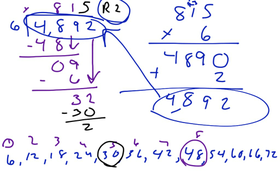 815 R2
6 4,892
-48
09
-6
32
-30
2
815
× 6
4890
+ 2
4,892
1 2 3 4 5 6 7 8
6, 12, 18, 24, 30, 36, 42, 48, 54, 60, 66, 72